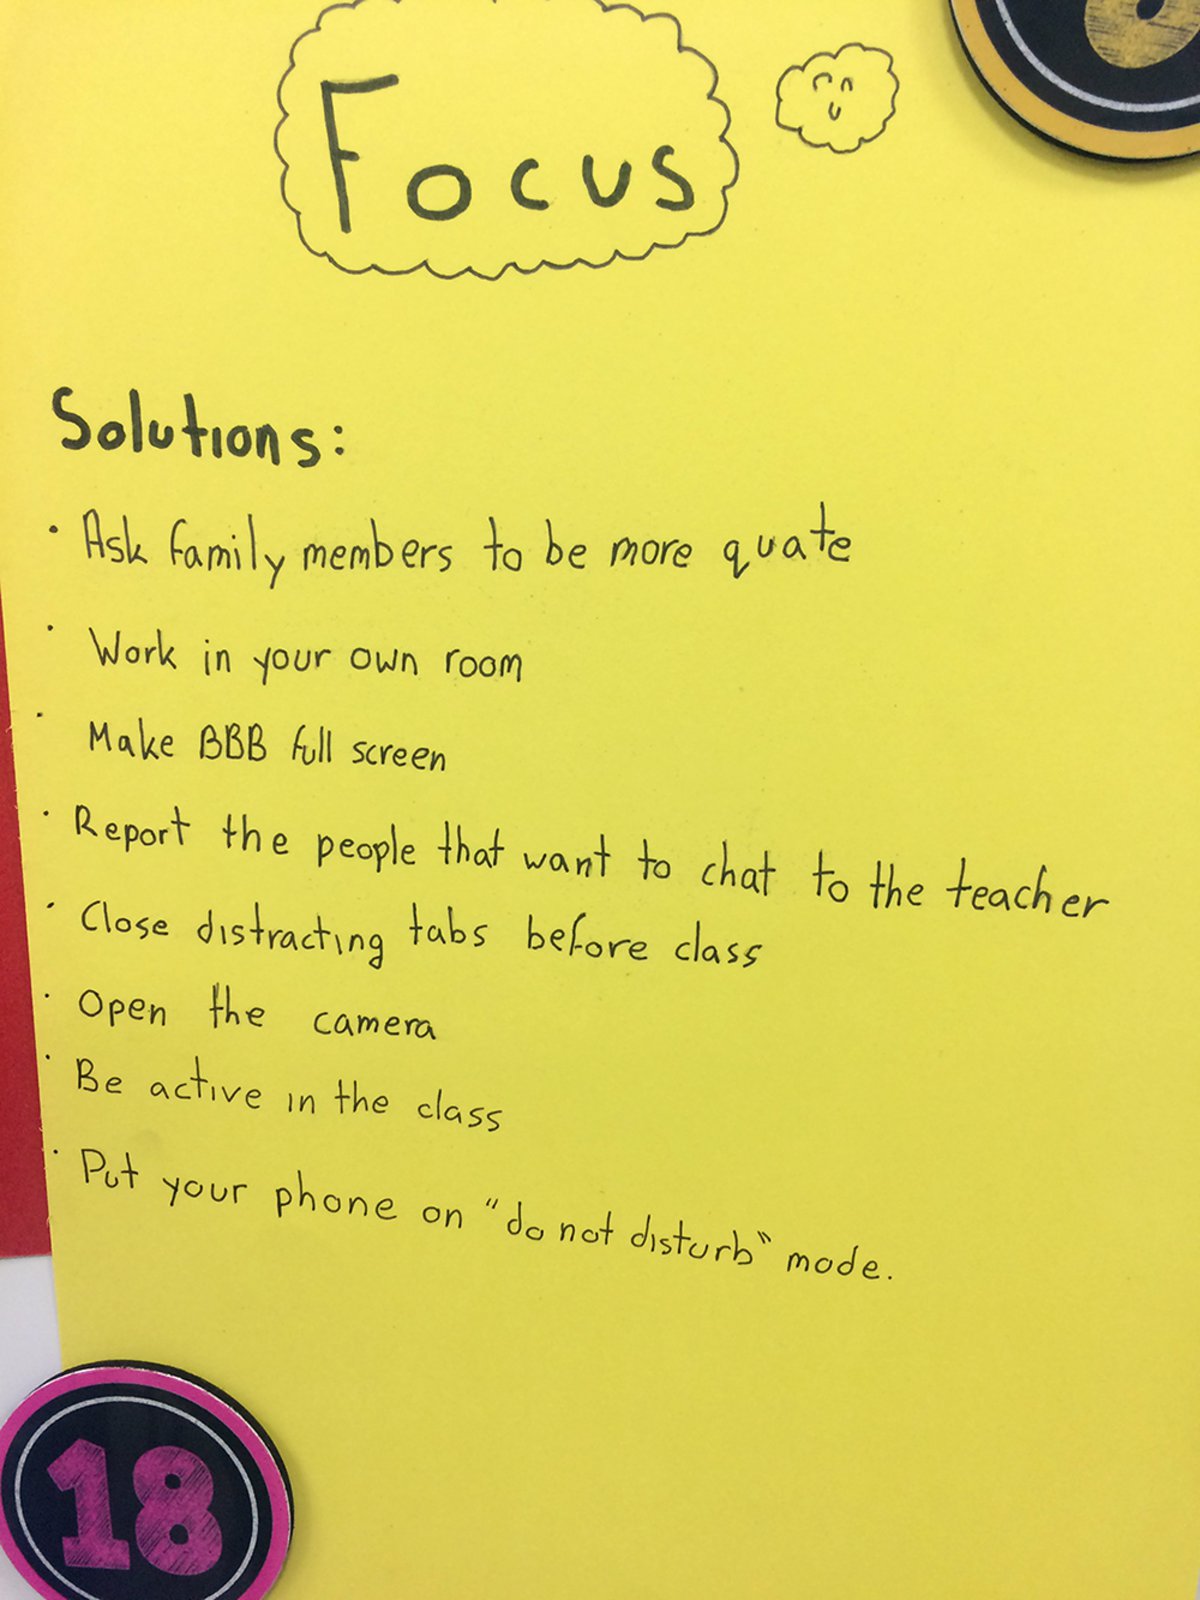 Focus
Solutions:
· Ask family members to be more quate
· Work in your own room
· Make BBB full screen
· Report the people that want to chat to the teacher
· Close distracting tabs before class
· Open the camera
· Be active in the class
· Put your phone on "do not disturb" mode.
18